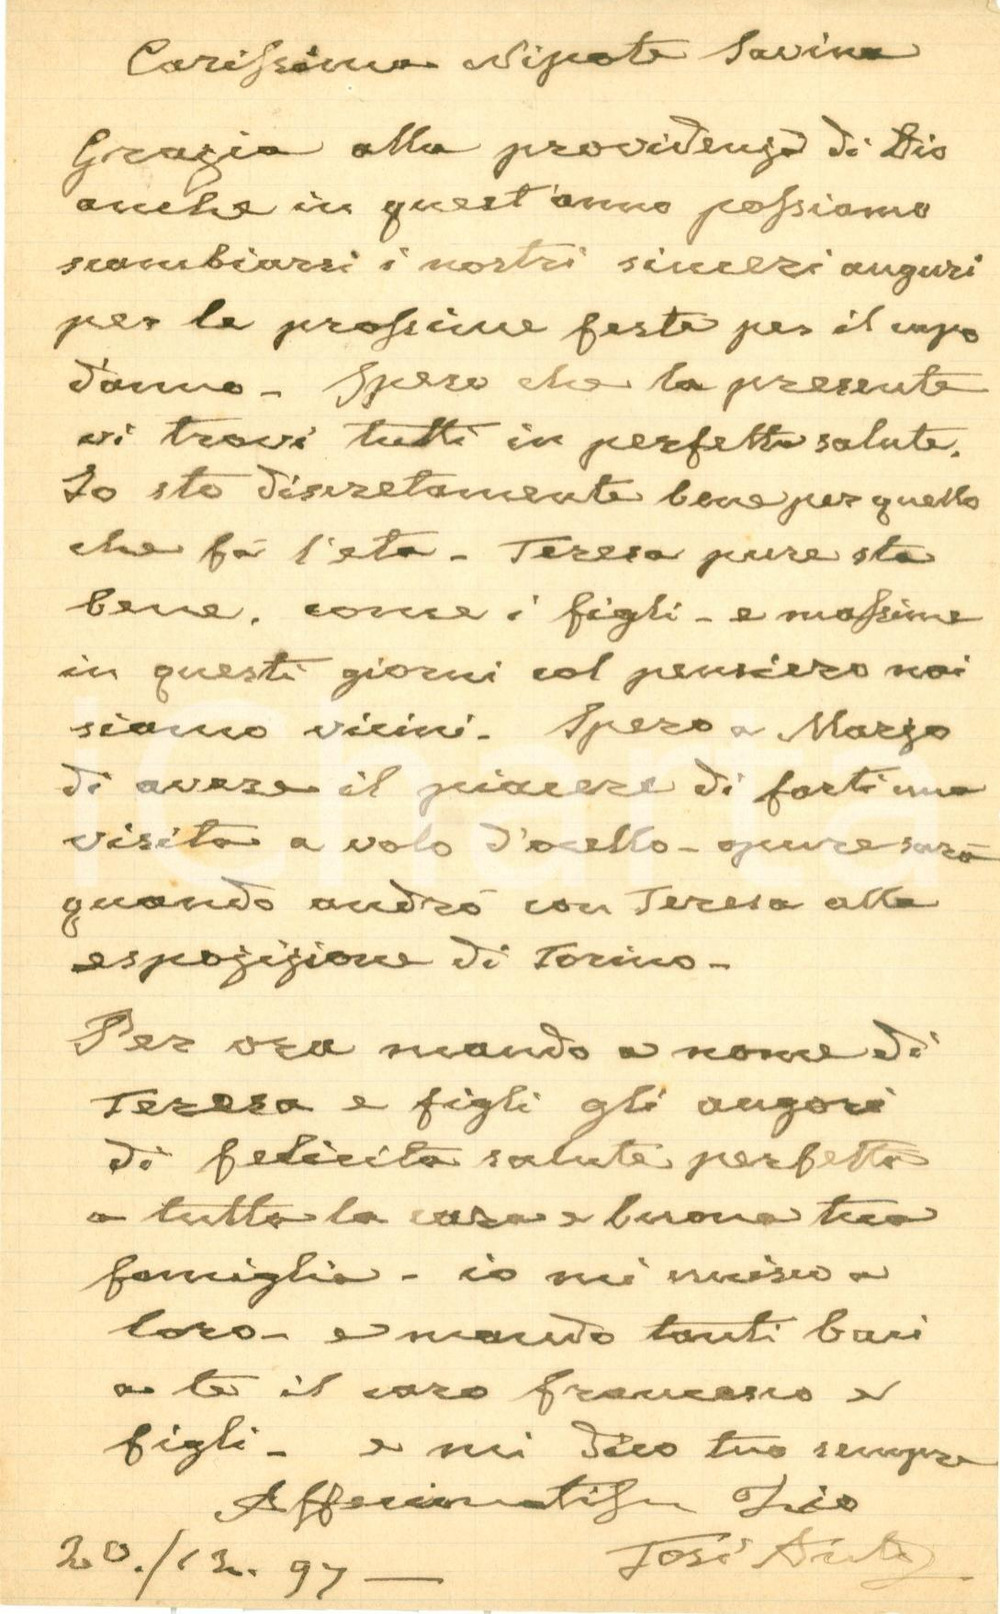 Carissima Nipote Savina
Grazia alla providenza di Dio
anche in quest'anno possiamo
scambiarsi i nostri sinceri auguri
per le prossime feste per il capo
d'anno - Spero che la presente
vi trovi tutti in perfetta salute.
Io sto discretamente bene per quello
che fà l'eta - Teresa pure sta
bene. come i figli - e massime
in questi giorni col pensiero noi
siamo vicini - Spero a Marzo
di avere il piacere di farti una
visita a volo d'ocello - opure sarà
quando andrò con Teresa alla
esposizione di Torino -
Per ora mando a nome di
Teresa e figli gli augori
di felicita salute perfetta
a tutta la cara e buona tua
famiglia - io mi unisco a
loro - e mando tanti baci
a te il caro francesco e
figli - e mi dico tuo sempre
Zio
20./12.97 —